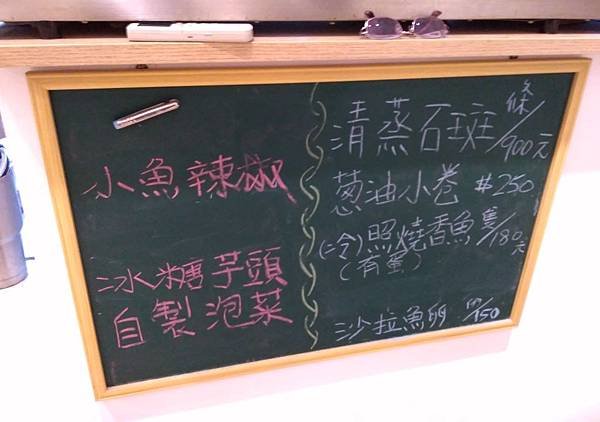 小魚辣椒
冰糖芋頭
自製泡菜
清蒸石斑 條/900元
葱油小卷 #250
(冷)照燒香魚 隻/180元
(有蛋)
沙拉魚卵 /150